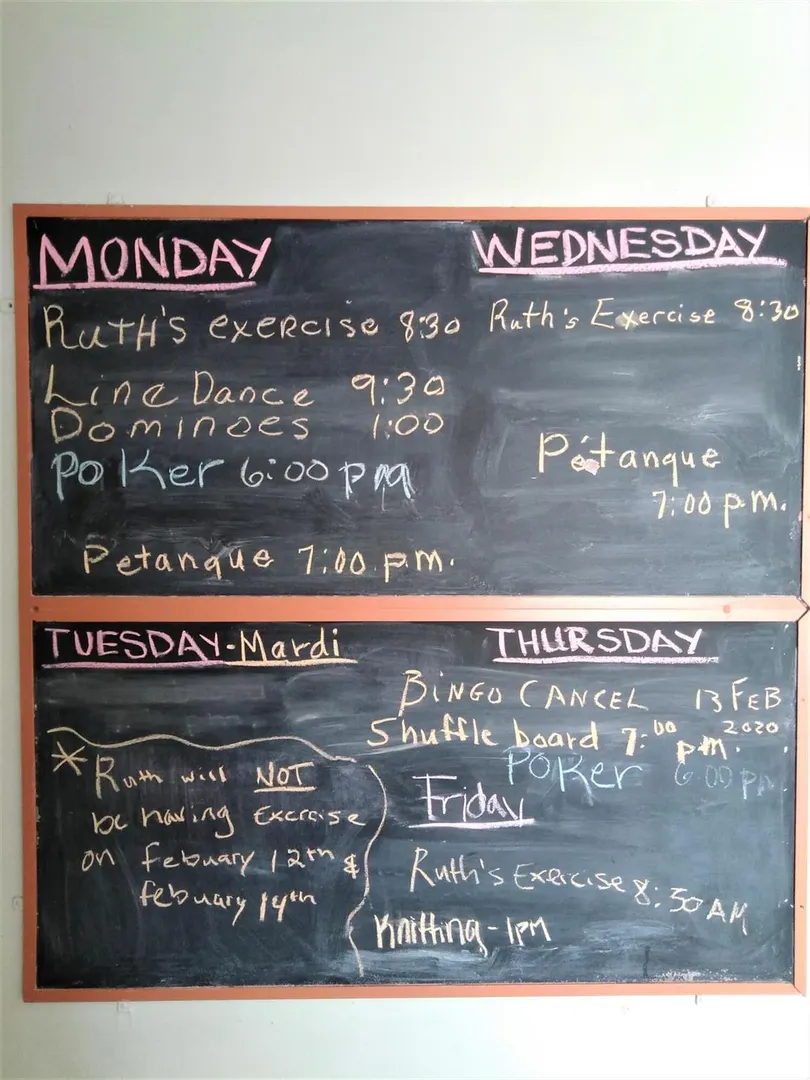 MONDAY
RUTH'S exercise 8:30
Line Dance 9:30
Dominoes 1:00
Poker 6:00 pm
Petanque 7:00 p.m.
WEDNESDAY
Ruth's Exercise 8:30
Pétanque
7:00 p.m.
TUESDAY-Mardi
* Ruth will NOT
be having Exercise
on Febuary 12th &
Febuary 14th
THURSDAY
BINGO CANCEL 13 FEB
2020
Shuffle board 7:00 p.m.
POKER 6:00 pm
Friday
Ruth's Exercise 8:30 AM
Knitting - 1PM